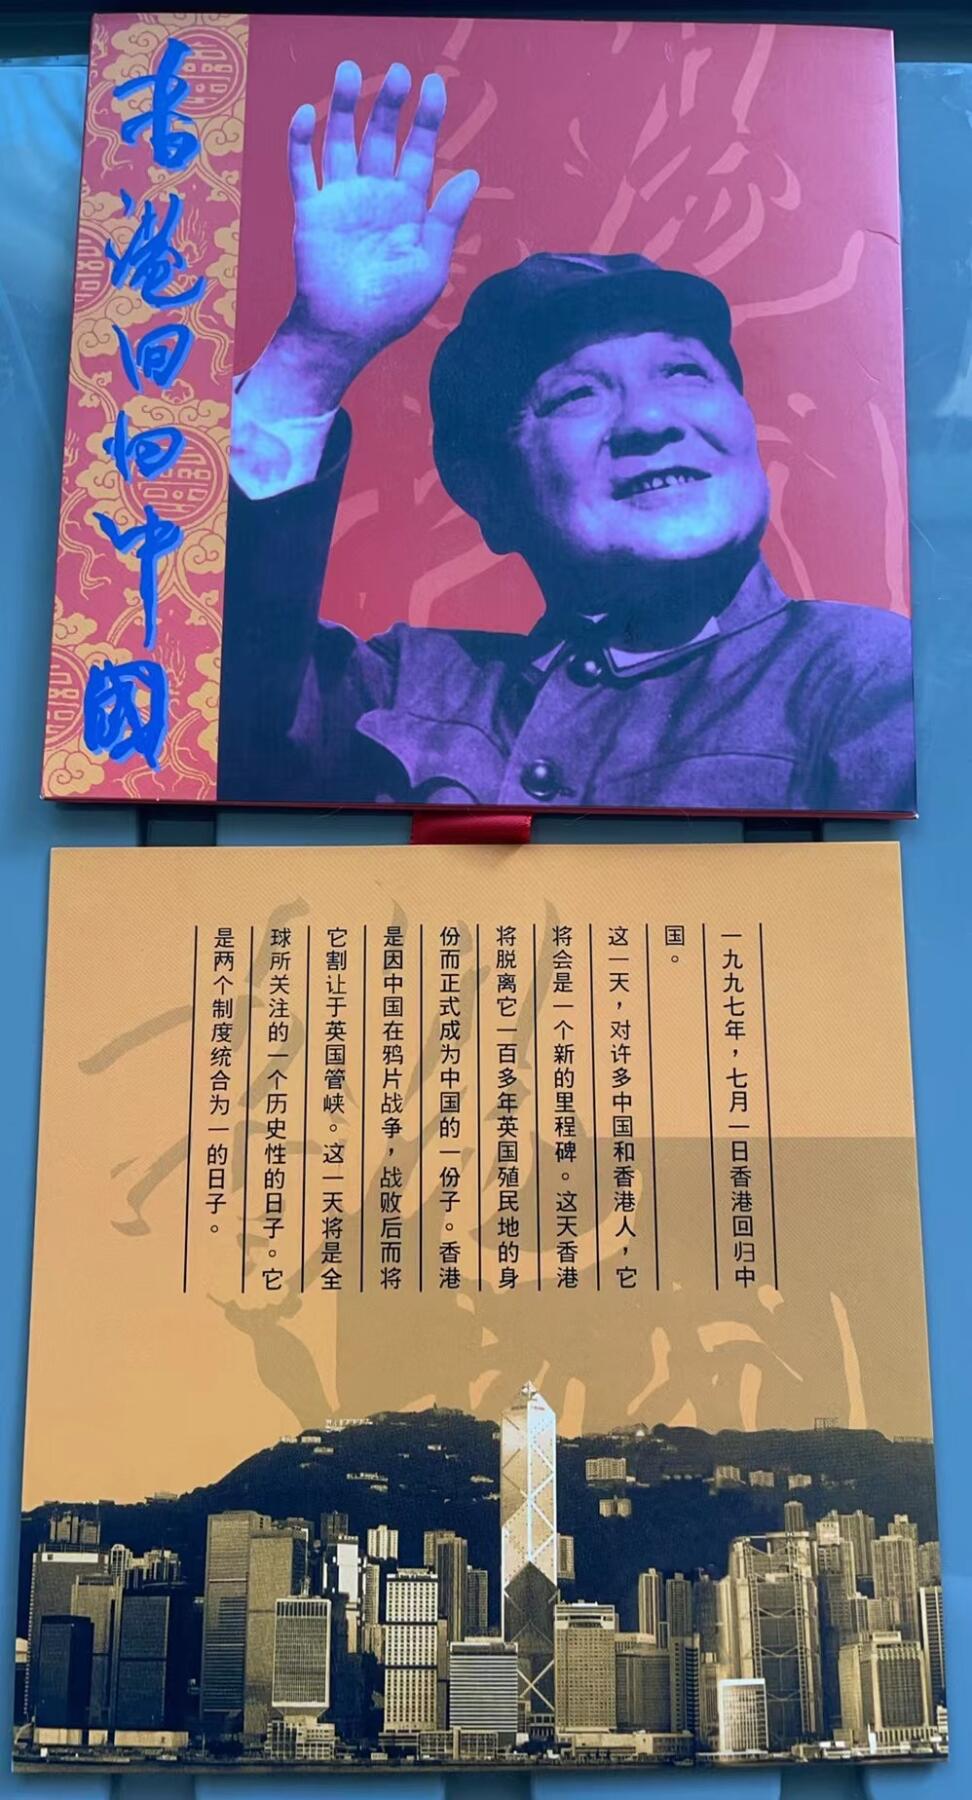 香港回归中國
一九九七年，七月一日香港回归中
国。
这一天，对许多中国和香港人，它
将会是一个新的里程碑。这天香港
将脱离它一百多年英国殖民地的身
份而正式成为中国的一份子。香港
是因中国在鸦片战争，战败后而将
它割让于英国管峡。这一天将是全
球所关注的一个历史性的日子。它
是两个制度统合为一的日子。